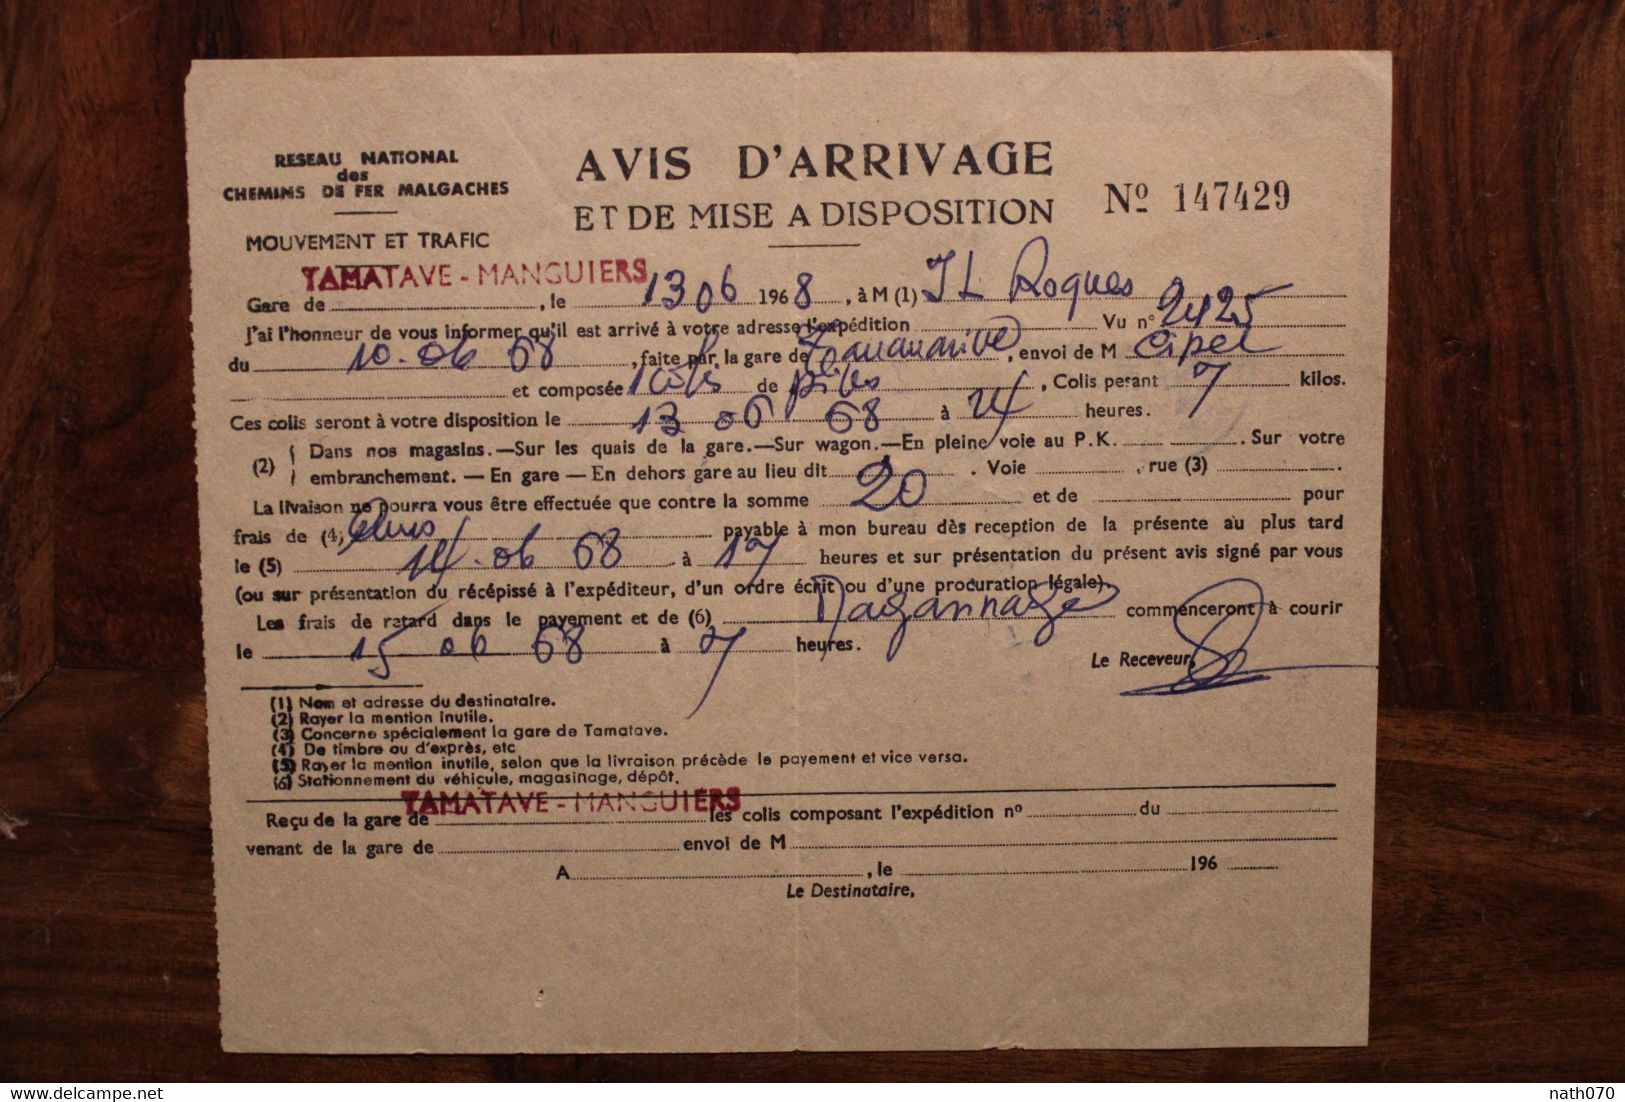 RESEAU NATIONAL
des
CHEMINS DE FER MALGACHES
MOUVEMENT ET TRAFIC
AVIS D'ARRIVAGE
ET DE MISE A DISPOSITION
Nº 147429
TAMATAVE - MANGUIERS
Gare de , le 13 06 1968 , à M (1) J L Roques
J'ai l'honneur de vous informer qu'il est arrivé à votre adresse l'expédition Vu n° 2425
du 10.06 68 , faite par la gare de Tananarive , envoi de M Cipel
et composée 1 colis de piles , Colis perant 7 kilos.
Ces colis seront à votre disposition le 13 06 68 à 14 heures.
(2) Dans nos magasins.—Sur les quais de la gare.—Sur wagon.—En pleine voie au P.K. . Sur votre
embranchement. — En gare — En dehors gare au lieu dit . Voie , rue (3) .
La livaison ne pourra vous être effectuée que contre la somme 20 et de pour
frais de (4) payable à mon bureau dès reception de la présente au plus tard
le (5) 14.06 68 à 17 heures et sur présentation du présent avis signé par vous
(ou sur présentation du récépissé à l'expéditeur, d'un ordre écrit ou d'une procuration légale).
Les frais de retard dans le payement et de (6) Magasinage commenceront à courir
le 15 06 68 à 7 heures.
Le Receveur,
(1) Nom et adresse du destinataire.
(2) Rayer la mention inutile.
(3) Concerne spécialement la gare de Tamatave.
(4) De timbre ou d'exprès, etc
(5) Rayer la mention inutile, selon que la livraison précède le payement et vice versa.
(6) Stationnement du véhicule, magasinage, dépôt.
TAMATAVE - MANGUIERS
Reçu de la gare de les colis composant l'expédition n° du
venant de la gare de envoi de M
A , le 196
Le Destinataire,
delcampe.net
nath070